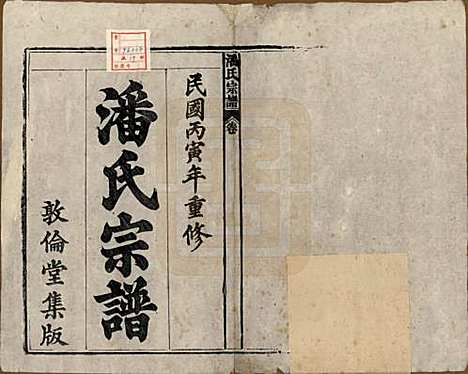 潘氏宗譜 卷
民國丙寅年重修
潘氏宗譜
敦倫堂集版